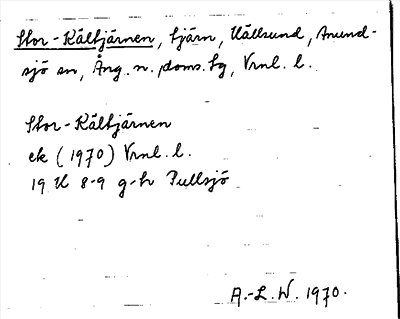 Stor-Kältjärnen, tjärn, Källsund, Anund-
sjö sn, Ång. n. doms. tg, Vrnl. l.
Stor-Kältjärnen
ek (1970) Vrnl. l.
19 H 8-9 g-h Pullsjö
A.-L. W. 1970.